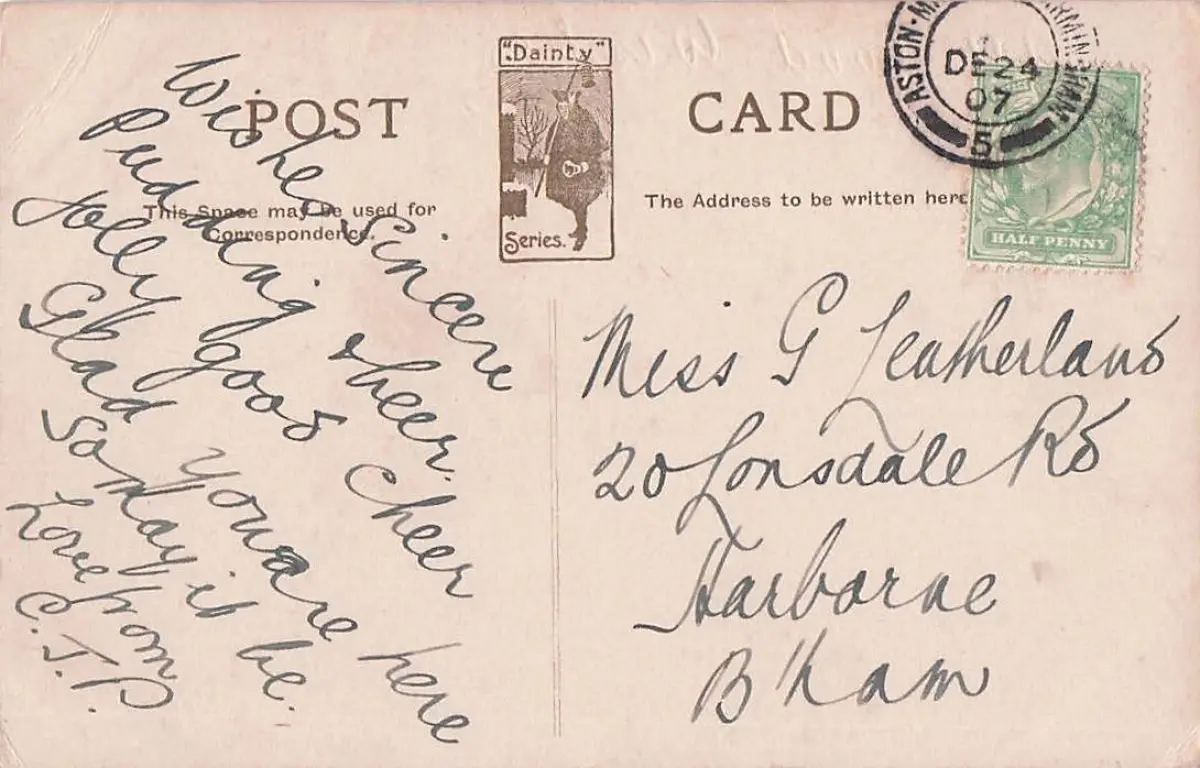 "Dainty"
Series.
POST CARD
This Space may be used for
Correspondence.
The Address to be written here
ASTON·M BIRMINGHAM
DE 24
07
5
HALF PENNY
Wishes Sincere
Pudding & beer.
Jolly good Cheer
Glad you are here
So may it be.
Love from
C.J.P.
Miss G Leatherland
20 Lonsdale Rd
Harborne
B'ham